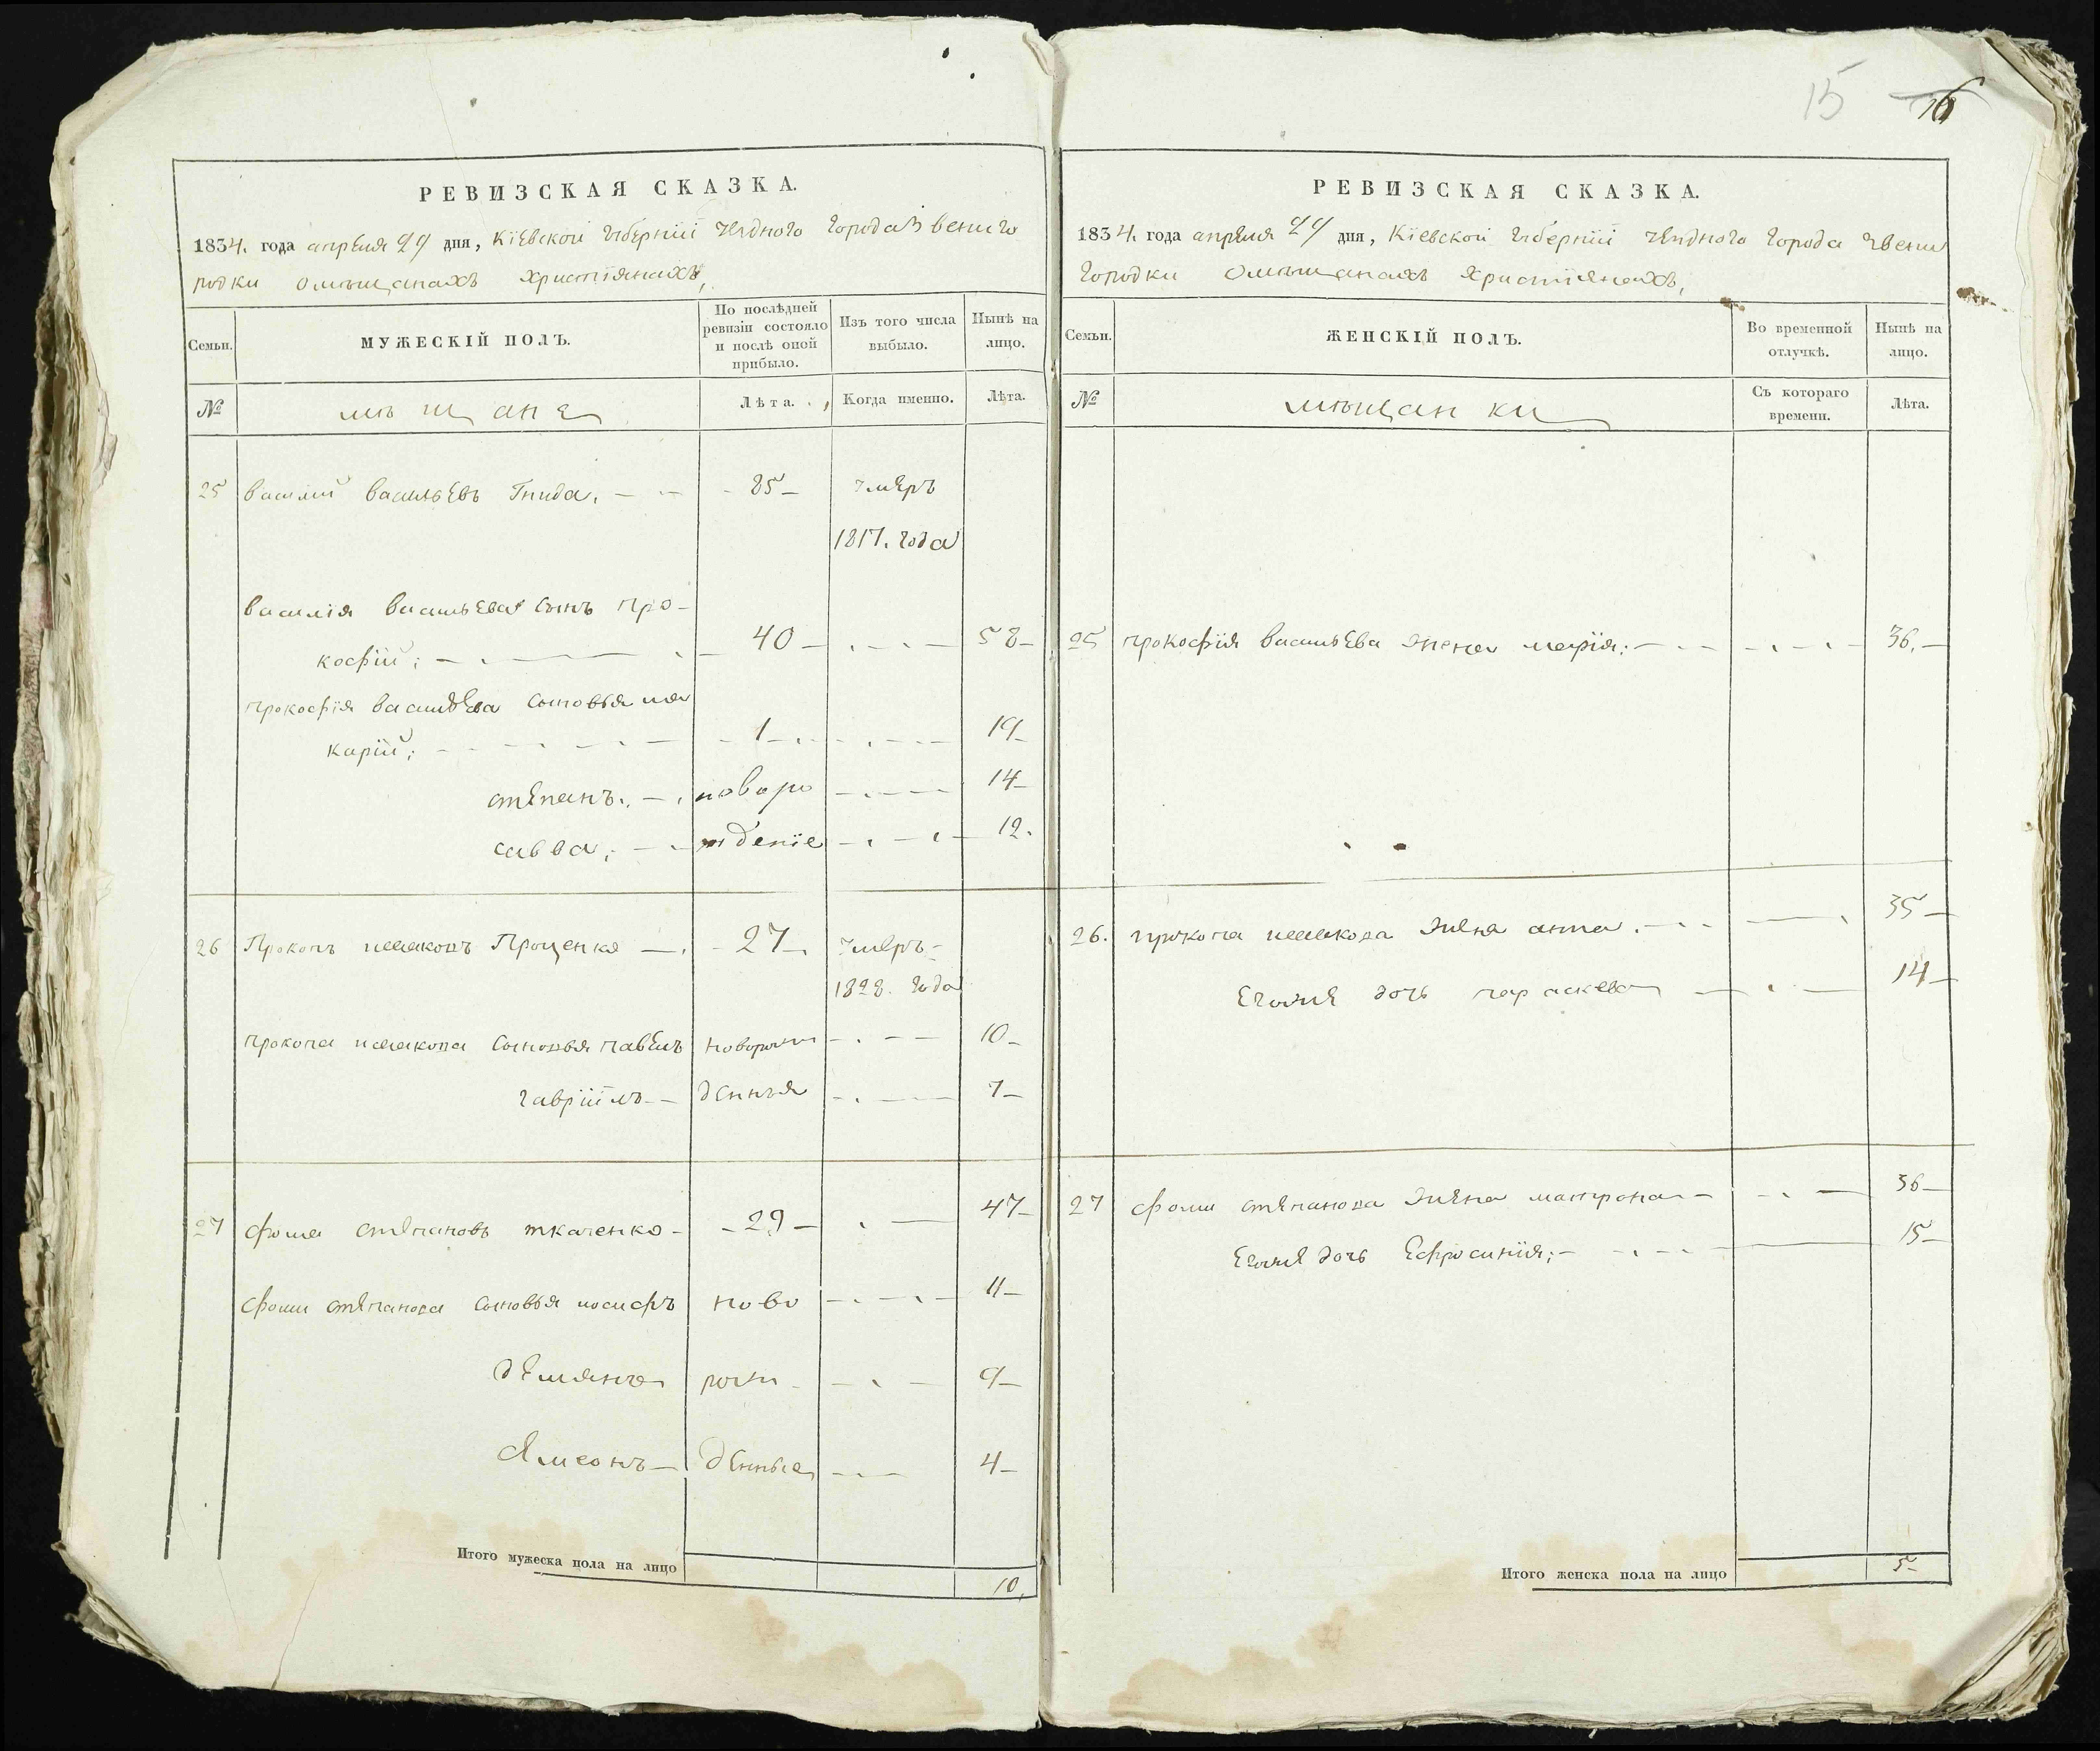 15 16
РЕВИЗСКАЯ СКАЗКА.
1834. года апреля 29 дня, Кіевской губерніи уездного города Звениго
родки омѣщанахъ христіянахъ,
Семьи.
МУЖЕСКІЙ ПОЛЪ.
По послѣдней ревизіи состояло и послѣ оной прибыло.
Изъ того числа выбыло.
Нынѣ на лицо.
№
мѣщане
Лѣта.
Когда именно.
Лѣта.
25 василий васильевъ Гнида. 85 умеръ
1817. года
василія васильева сынъ про-
кофій; 40 58
прокофія васильева сыновья ма
карій; 1 19
степанъ. новоро 14
савва; жденіе 12.
26 Прокопъ исааковъ Проценко 27 умеръ
1828. года
прокопа исаакова сыновья павелъ новорож 10
гавріилъ денныя 7
27 фома степановъ ткаченко 29 47
фомы степанова сыновья иосифъ ново 11
демянъ рож 9
Симеонъ денные 4
Итого мужеска пола на лицо 10,
РЕВИЗСКАЯ СКАЗКА.
1834. года апреля 29 дня, Кіевской губерніи уездного города звени
городки омѣщанахъ христіянахъ,
Семьи.
ЖЕНСКІЙ ПОЛЪ.
Во временной отлучкѣ.
Нынѣ на лицо.
№
мѣщанки
Съ котораго времени.
Лѣта.
25 прокофія васильева жена марія; 36.
26. прокопа исаакова жена анна. 35
Егоже дочь параскева 14
27 фомы степанова жена матрона 36
Егоже дочь Ефросинія; 15
Итого женска пола на лицо 5